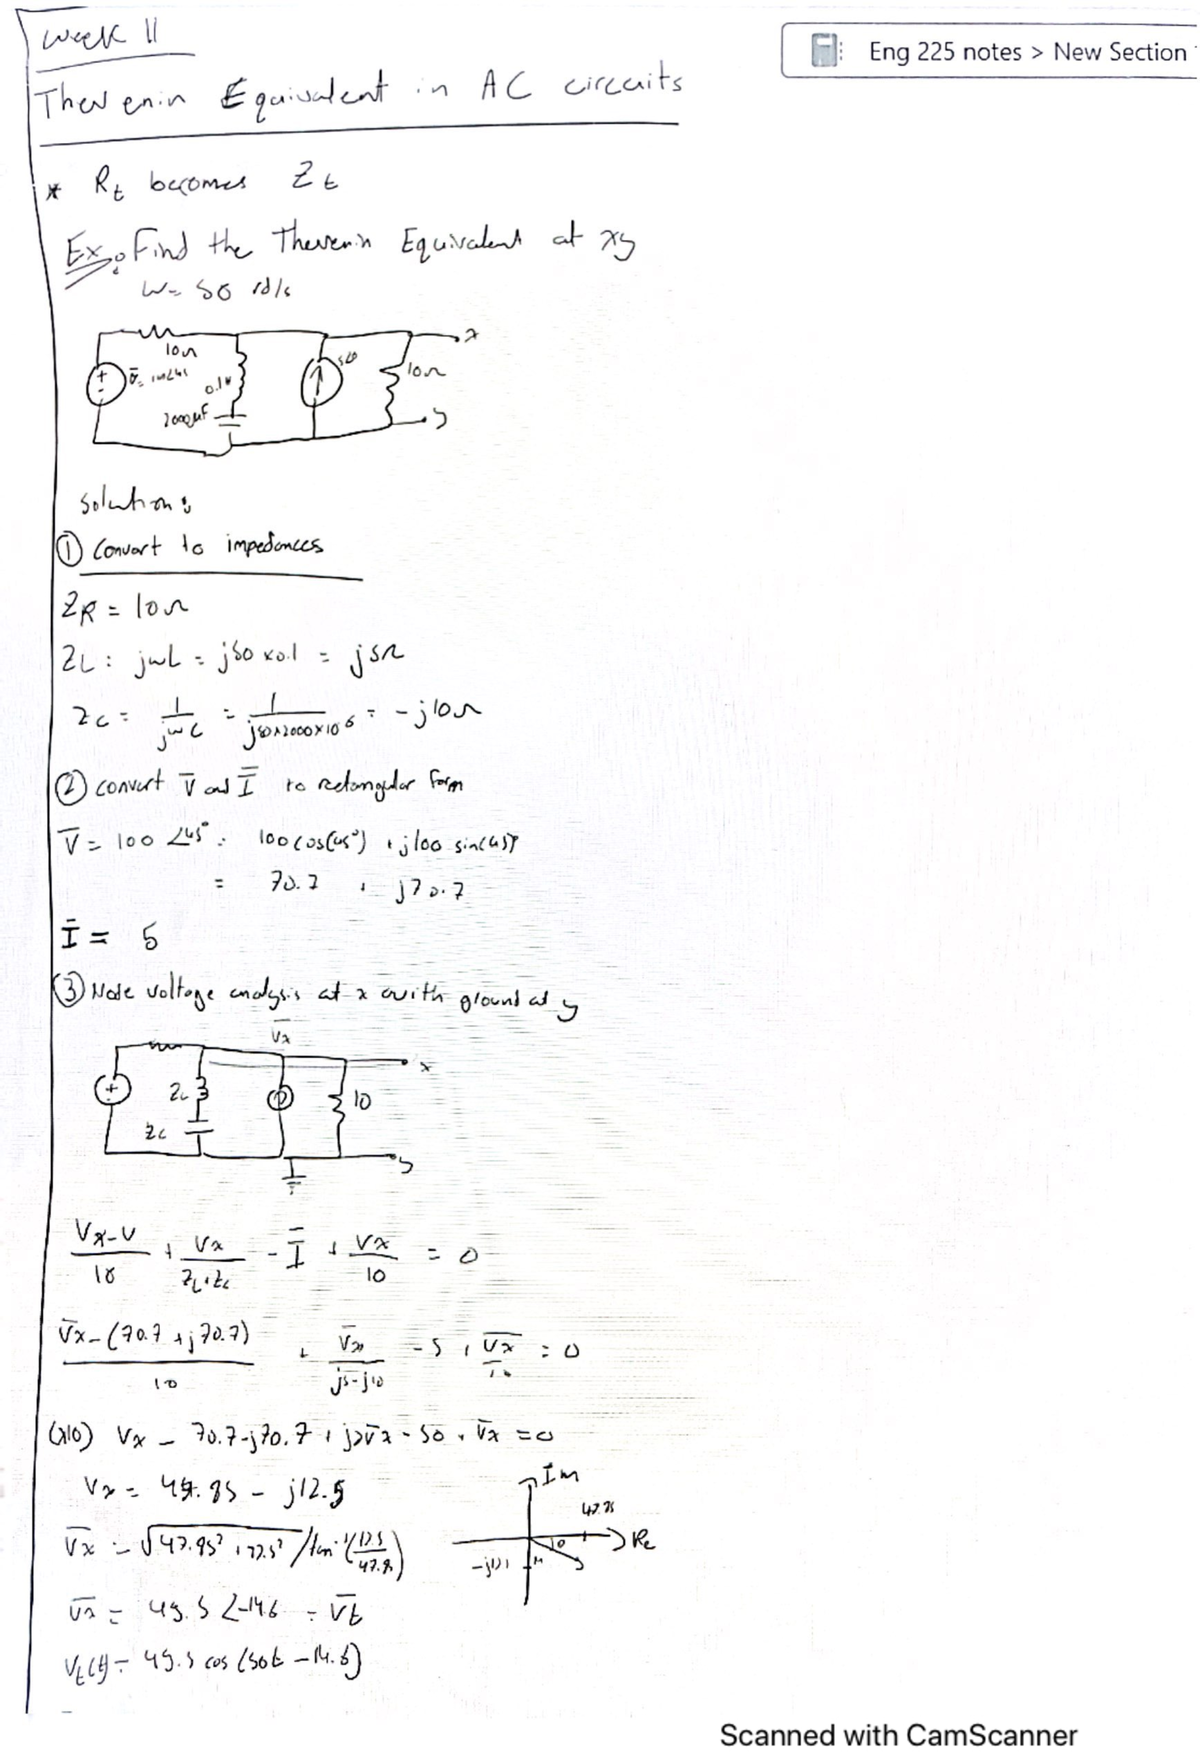 Week 11
Eng 225 notes > New Section
Thevenin Equivalent in AC circuits
* Rt becomes Zt
Ex: Find the Thevenin Equivalent at xy
W= 50 rd/s
x
10Ω
V= 100∠45
0.1H
5∠0
10Ω
2000μF
y
solution:
① Convert to impedances
ZR = 10Ω
ZL: jwL = j50 x0.1 = j5Ω
Zc = 1/jwC = 1/j50x2000x10^-6 = -j10Ω
② convert V and I to rectangular form
V = 100 ∠45° = 100cos(45°) + j100 sin(45)°
= 70.7 + j70.7
I = 5
③ Node voltage analysis at x with ground at y
Vx
x
ZL
10
Zc
y
Vx-V/10 + Vx/ZL+Zc - I + Vx/10 = 0
Vx-(70.7+j70.7)/10 + Vx/j5-j10 - 5 + Vx/10 = 0
(x10) Vx - 70.7-j70.7 + j2Vx - 50 + Vx = 0
Vx = 47.85 - j12.5
Im
47.85
Vx = √47.85² + 12.5² /tan⁻¹(12.5/47.8)
Re
Vx = 49.5 ∠-14.6 = Vt
Vt(t) = 49.5 cos (50t - 14.6)
Scanned with CamScanner